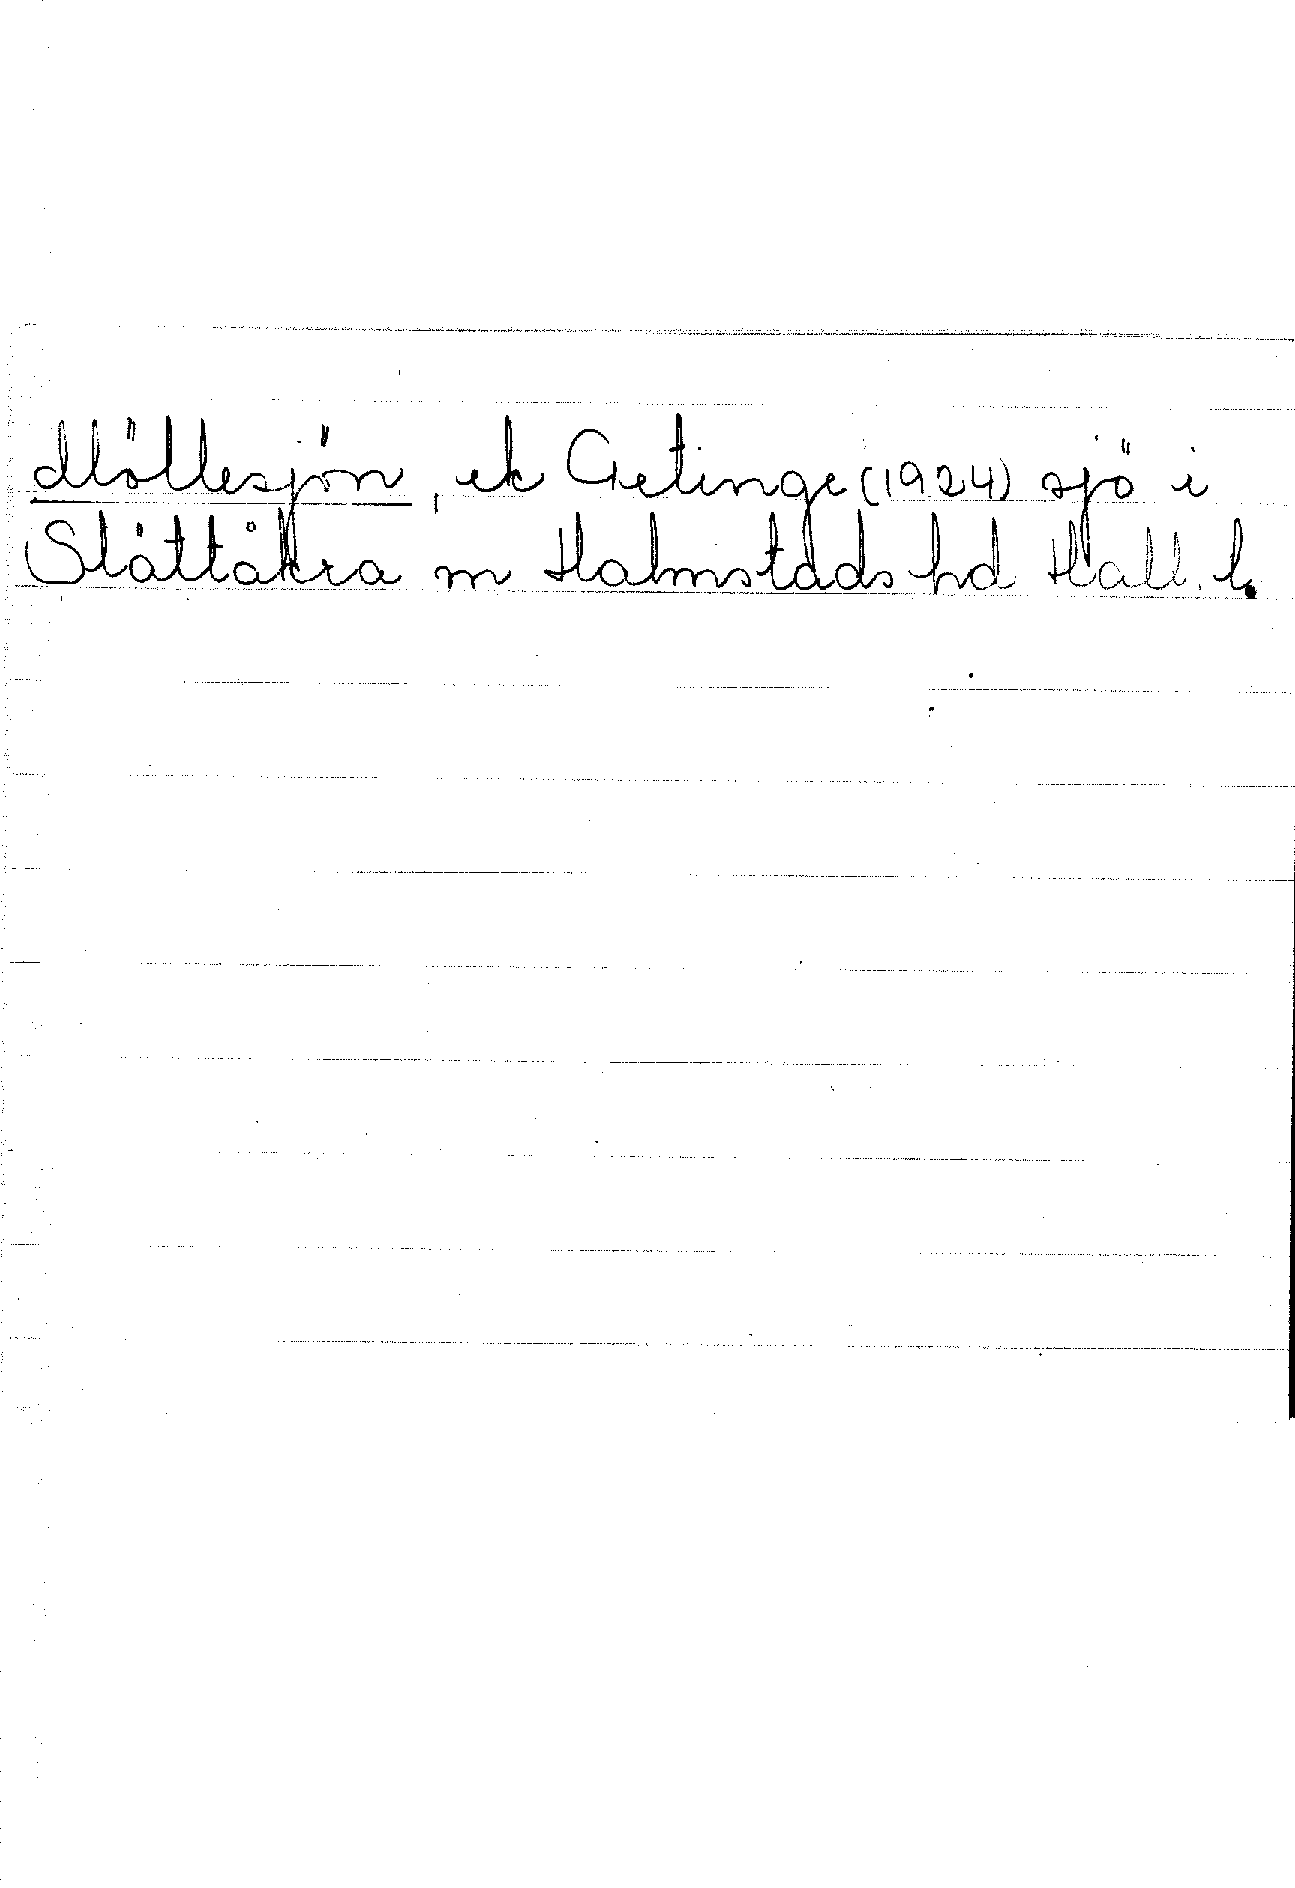 Möllesjön, ek Getinge (1924) sjö i
Slättåkra m Halmstads hd Hall. l.